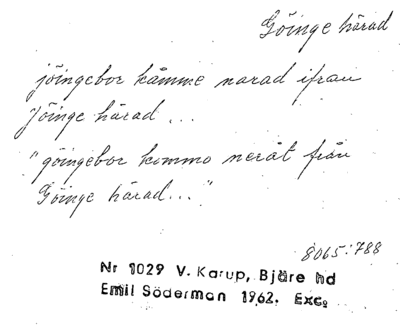 Göinge härad
jöingebor kåmme narad ifrau
Jöinge härad...
"göingebor komma neråt från
Göinge härad..."
8065:788
Nr 1029 V. Karup, Bjäre hd
Emil Söderman 1962. Exc.